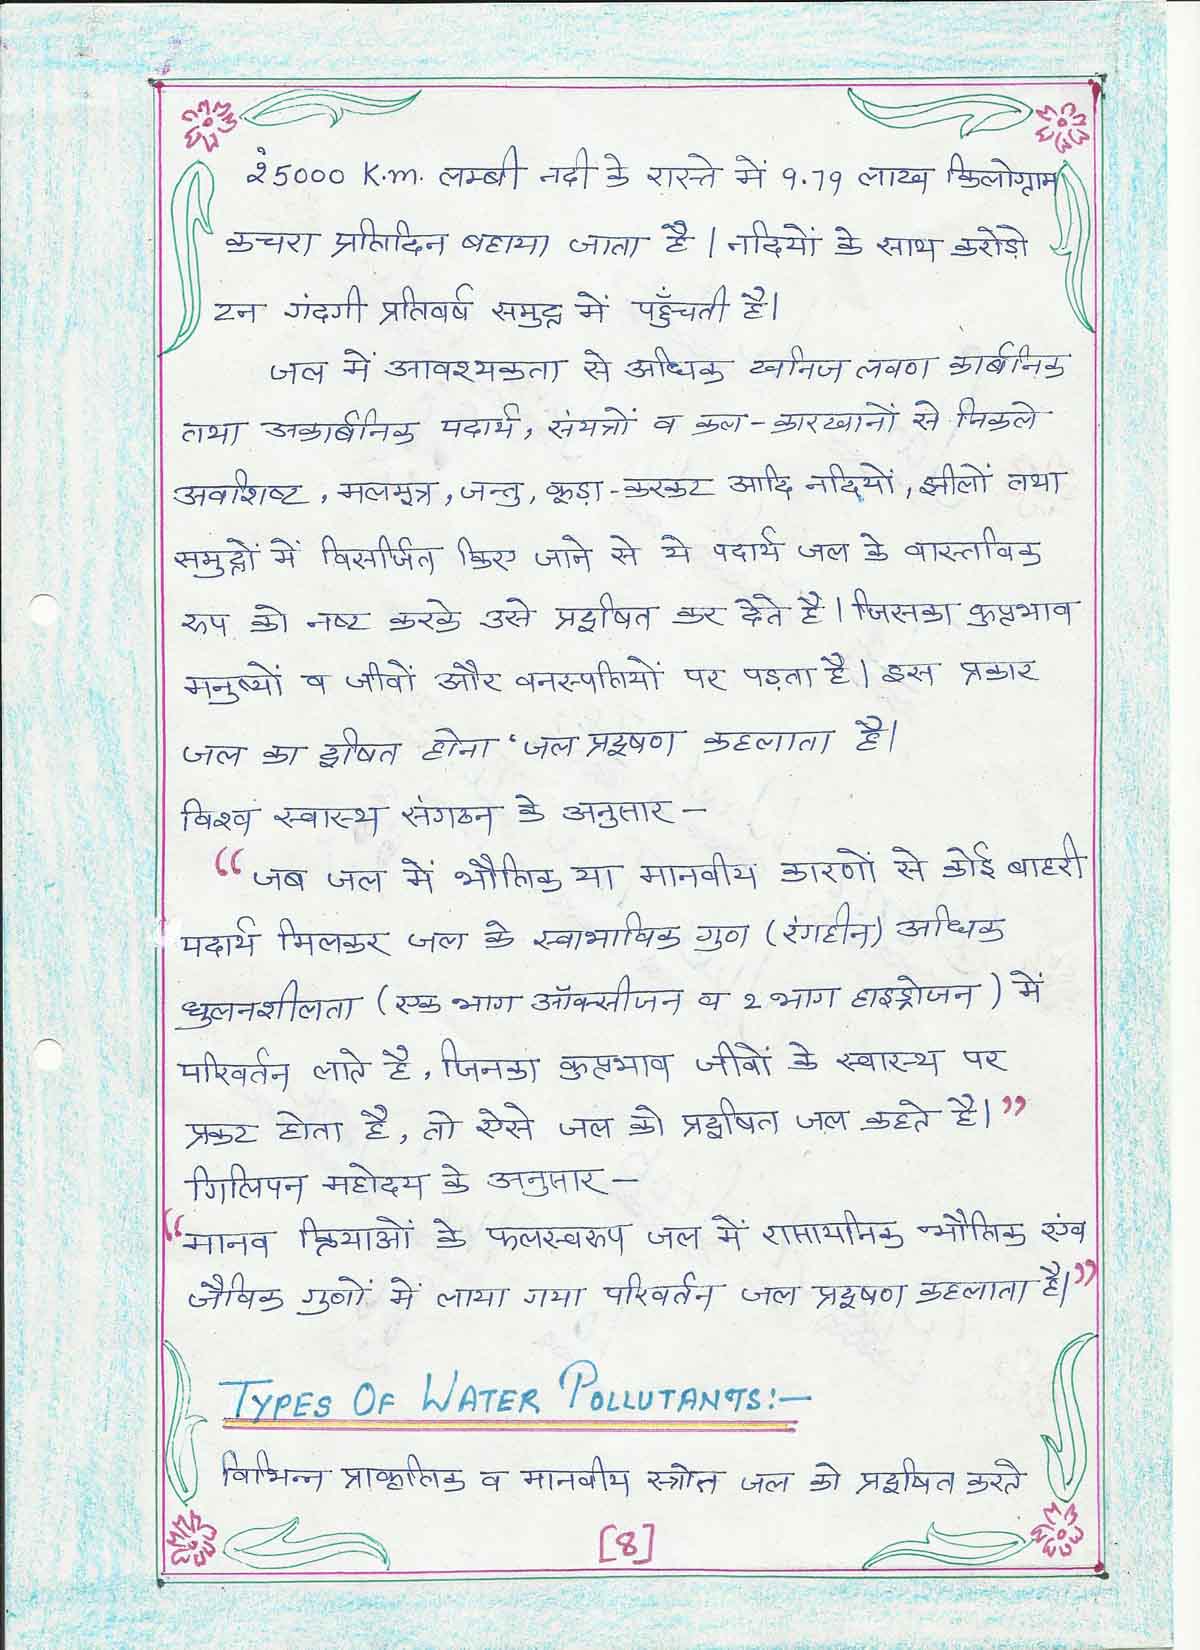 25000 K.m. लम्बी नदी के रास्ते में 9.79 लाख किलोग्राम
कचरा प्रतिदिन बहाया जाता है। नदियों के साथ करोड़ो
टन गंदगी प्रतिवर्ष समुद्र में पहुँचती है।
जल में आवश्यकता से अधिक खनिज लवण कार्बनिक
तथा अकार्बनिक पदार्थ, संयत्रों व कल-कारखानों से निकले
अवशिष्ट, मलमूत्र, जन्तु, कूड़ा-करकट आदि नदियों, झीलों तथा
समुद्रों में विसर्जित किए जाने से ये पदार्थ जल के वास्तविक
रुप को नष्ट करके उसे प्रदूषित कर देते है। जिसका कुप्रभाव
मनुष्यों व जीवों और वनस्पतियों पर पड़ता है। इस प्रकार
जल का दूषित होना 'जल प्रदूषण कहलाता है।
विश्व स्वास्थ संगठन के अनुसार –
“जब जल में भौतिक या मानवीय कारणों से कोई बाहरी
पदार्थ मिलकर जल के स्वाभाविक गुण (रंगहीन) अधिक
धुलनशीलता (एक भाग ऑक्सीजन व 2 भाग हाइड्रोजन) में
परिवर्तन लाते है, जिनका कुप्रभाव जीवों के स्वास्थ पर
प्रकट होता है, तो ऐसे जल को प्रदूषित जल कहते है।”
गिलिपन महोदय के अनुसार –
“मानव क्रियाओं के फलस्वरुप जल में रासायनिक भौतिक एंव
जैविक गुणों में लाया गया परिवर्तन जल प्रदूषण कहलाता है।”
TYPES OF WATER POLLUTANTS:–
विभिन्न प्राकृतिक व मानवीय स्त्रोत जल को प्रदूषित करते
[8]